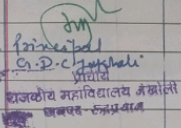 Principal
G.D.C Jakholi
प्राचार्य
राजकीय महाविद्यालय जखोली
जनपद - रूद्रप्रयाग